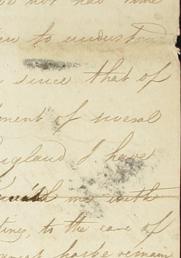 not had time
to understand
since that of
ment of several
England I have
me with
ting to the care of
horse remain